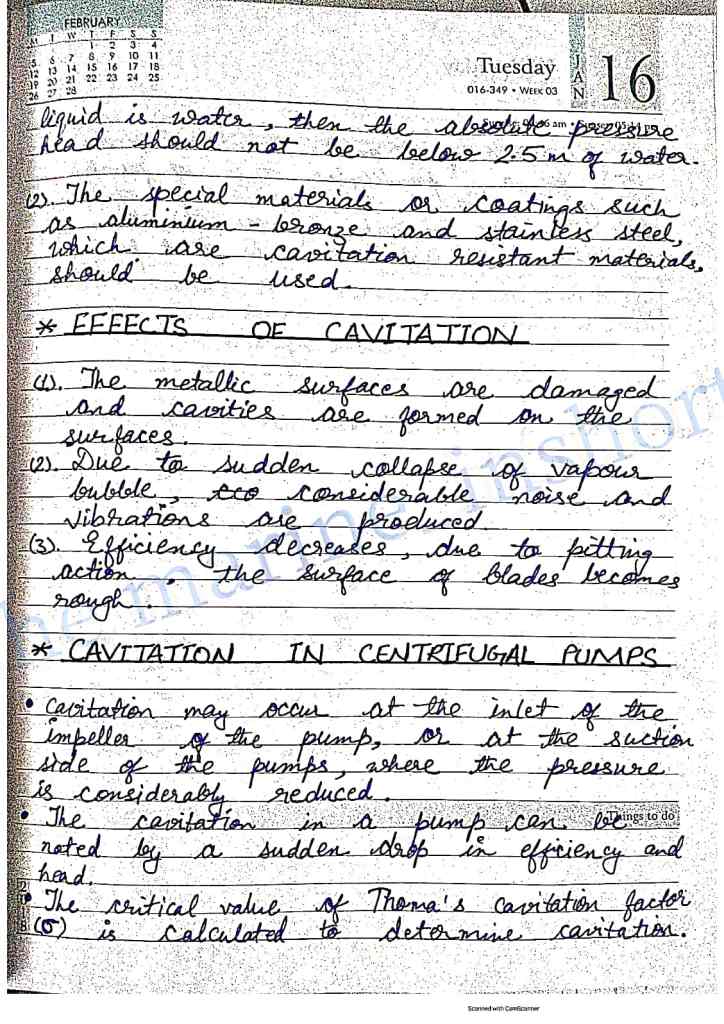 FEBRUARY
M T W T F S S
1 2 3 4
5 6 7 8 9 10 11
12 13 14 15 16 17 18
19 20 21 22 23 24 25
26 27 28
Tuesday
016-349 • WEEK 03
JAN
16
liquid is water, then the absolute pressure
head should not be below 2.5 m of water.
(2). The special materials or coatings such
as aluminium - bronze and stainless steel,
which are cavitation resistant materials,
should be used.
* EFFECTS OF CAVITATION
(1). The metallic surfaces are damaged
and cavities are formed on the
surfaces.
(2). Due to sudden collapse of vapour
bubble, considerable noise and
vibrations are produced
(3). Efficiency decreases, due to pitting
action. the surface of blades becomes
rough.
* CAVITATION IN CENTRIFUGAL PUMPS
• Cavitation may occur at the inlet of the
impeller of the pump, or at the suction
side of the pumps, where the pressure
is considerably reduced.
Things to do
• The cavitation in a pump can be
noted by a sudden drop in efficiency and
head.
• The critical value of Thoma's cavitation factor
(σ) is calculated to determine cavitation.
marine inshort
Scanned with CamScanner